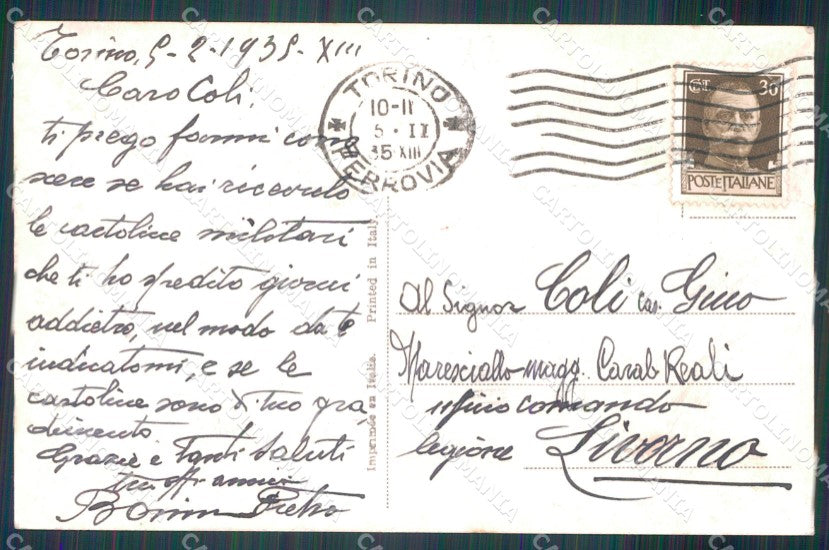 Torino, 5-2-1935-XIII
Caro Coli,
ti prego farmi cono
scere se hai ricevuto
le cartoline militari
che ti ho spedito giorni
addietro, nel modo da te
indicatomi, e se le
cartoline sono di tuo gra
dimento
Grazie e Tanti Saluti
tuo
Pietro
TORINO
10-11
5 · II
35 XIII
FERROVIA
CT. 30
POSTE ITALIANE
Imprimée en Italie. Printed in Italy
Al Signor Coli cav. Gino
Maresciallo-magg. Carab. Reali
ufficio comando
legione Livorno
CARTOLINOMANIA